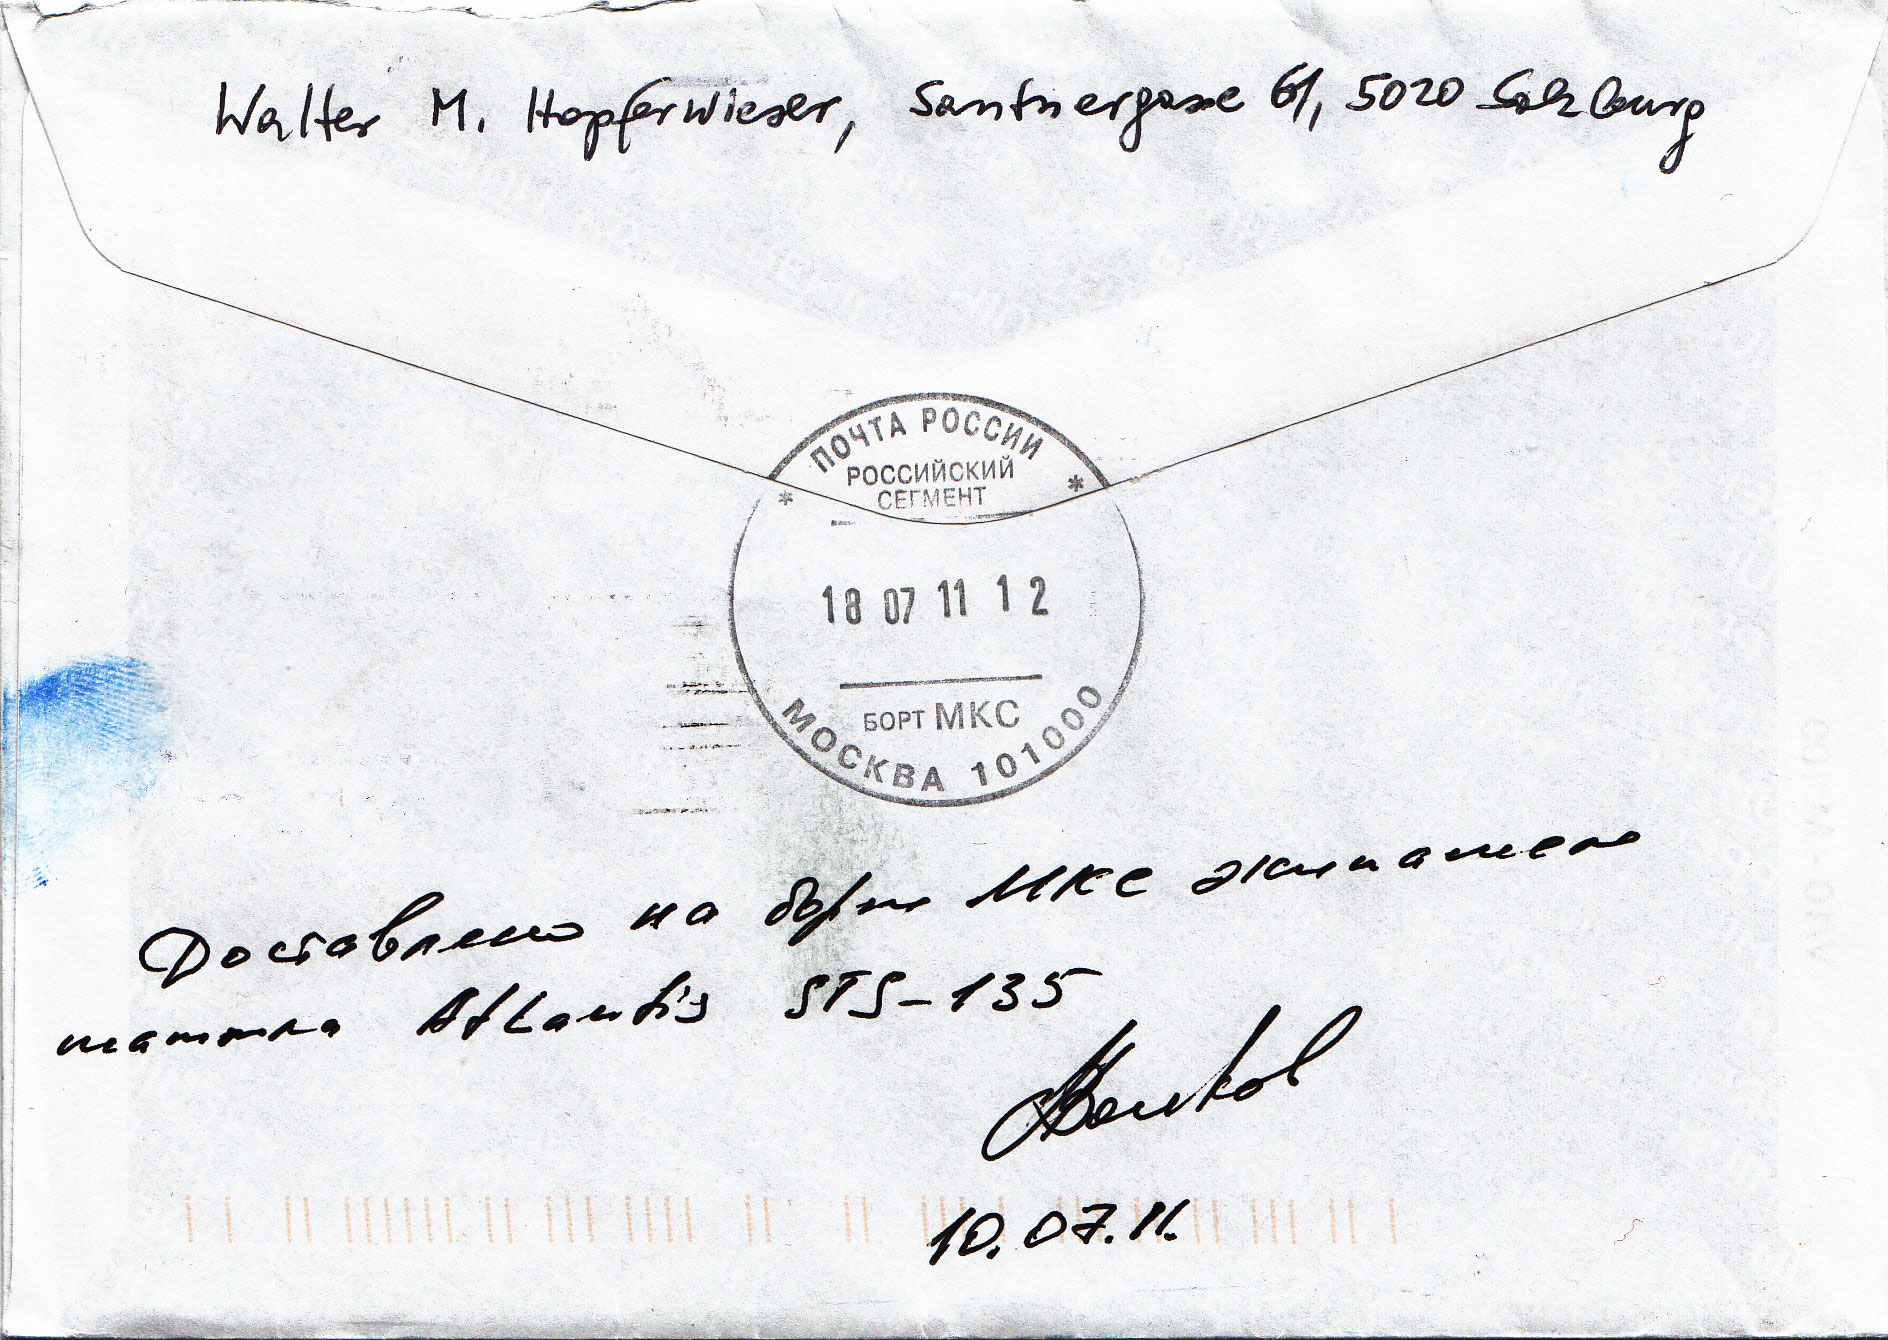 Walter M. Hopferwieser, Santnergasse 61, 5020 Salzburg
ПОЧТА РОССИИ
РОССИЙСКИЙ
СЕГМЕНТ
* *
18 07 11 12
БОРТ МКС
МОСКВА 101000
Доставлено на борт МКС экипажем
шаттла Atlantis STS-135
Волков
10.07.11.